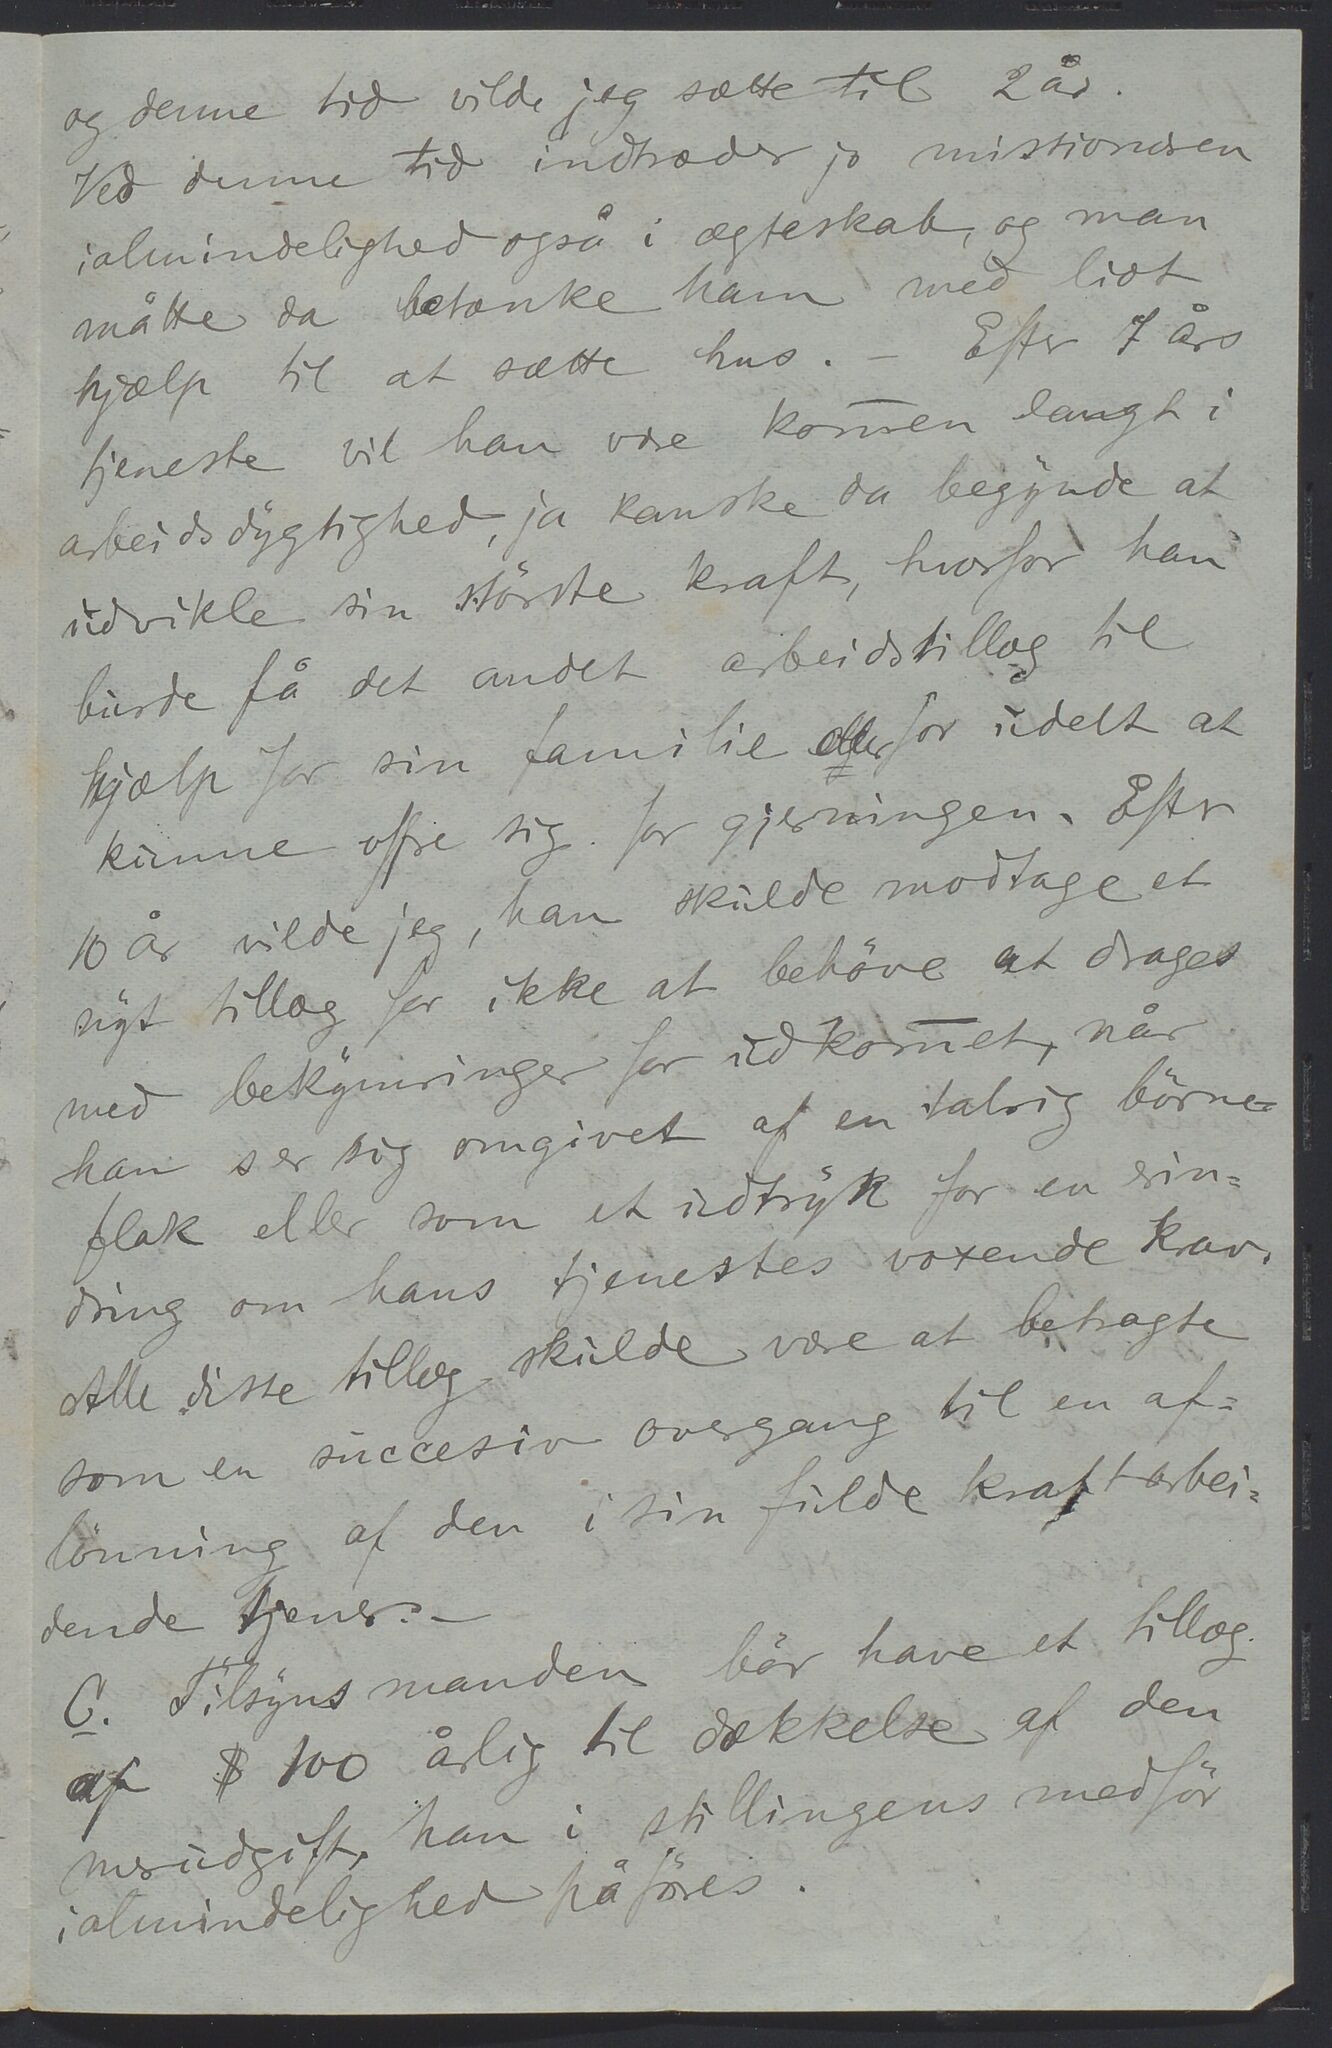 og denne tid vilde jeg sætte til 2 år.
Ved denne tid indtræder jo missionæren
ialmindelighed også i ægteskab, og man
måtte da betænke ham med lidt
hjælp til at sætte hus. – Efter 7 års
tjeneste vil han være kom̅en langt i
arbeidsdygtighed, ja kanske da begynde at
udvikle sin störste kraft, hvorfor han
burde få det andet arbeidstillæg til
hjælp for sin familie eller for udelt at
kunne ofre sig for gjerningen. Efter
10 år vilde jeg, han skulde modtage et
nyt tillæg for ikke at behöve at drages
med bekymringer for udkom̅et, når
han ser sig omgivet af en talrig börne=
flok eller som et udtryk for en erin=
dring om hans tjenestes voxende krav.
Alle disse tillæg skulde være at betragte
som en succesiv overgang til en af=
lönning af den i sin fulde kraft arbei=
dende tjener. –
C. Tilsynsmanden bör have et tillæg
af $ 100 årlig til dækkelse af den
merudgift, han i stillingens medför
ialmindelighed påföres.